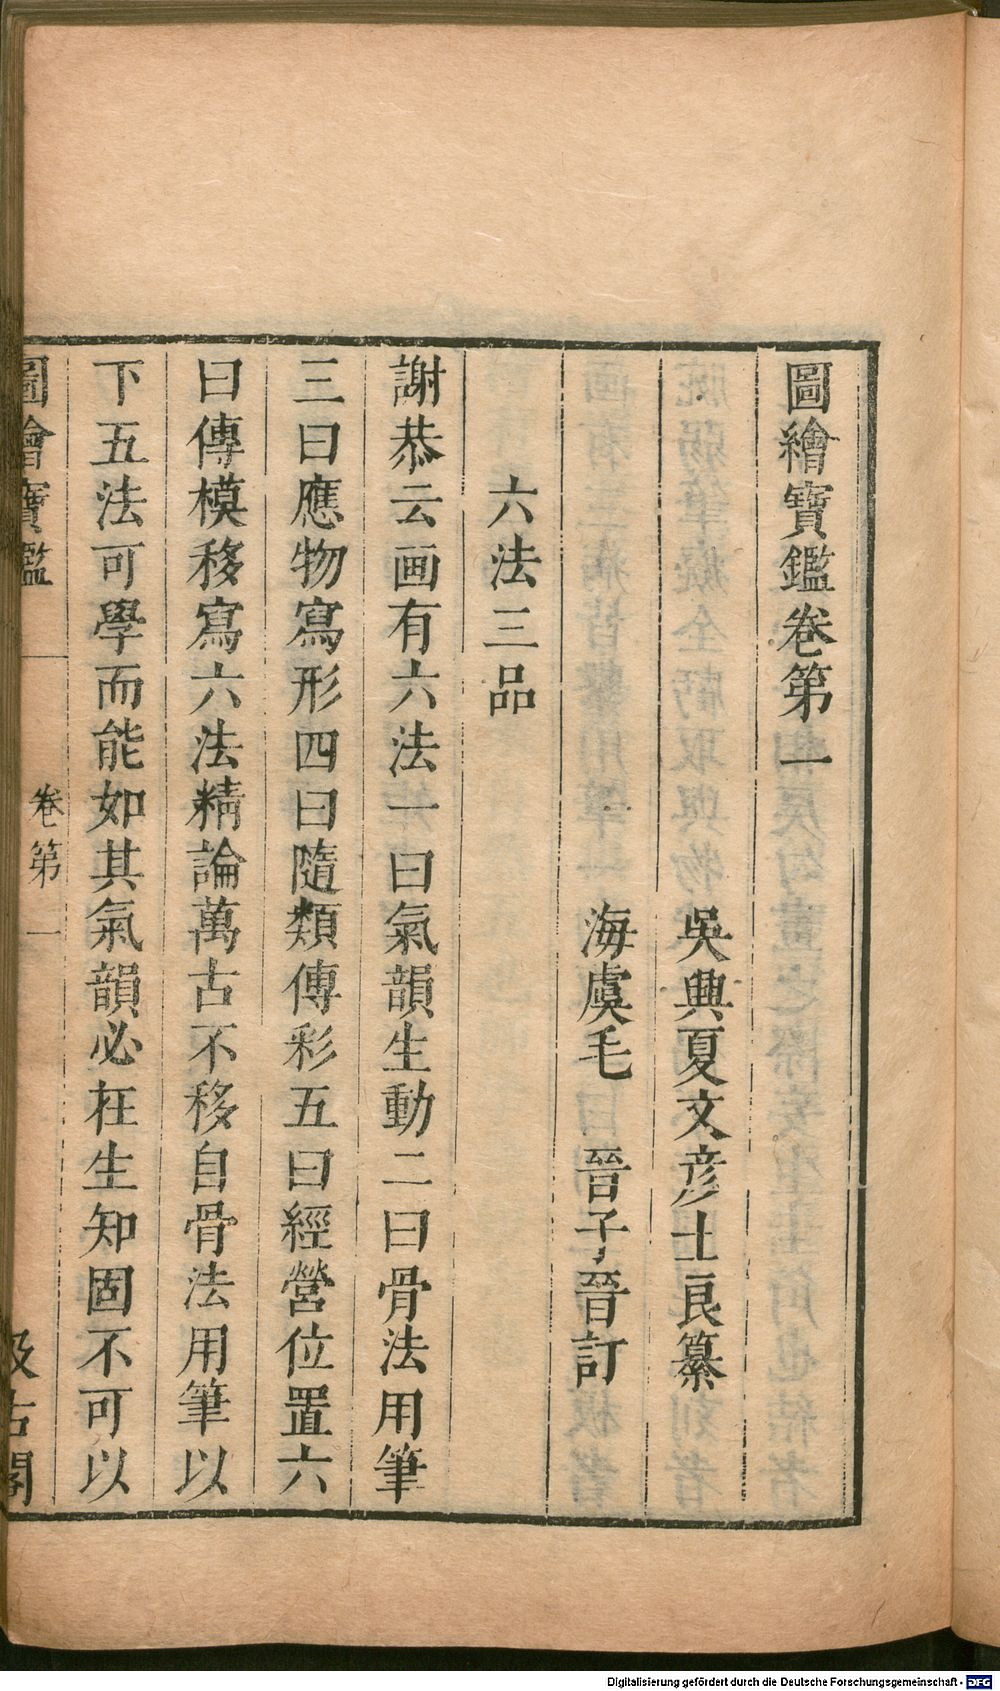 圖繪寶鑑卷第一
吳興夏文彥士良纂
海虞毛 晉子晉訂
六法三品
謝恭云画有六法一曰氣韻生動二曰骨法用筆
三曰應物寫形四曰隨類傳彩五曰經營位置六
曰傳模移寫六法精論萬古不移自骨法用筆以
下五法可學而能如其氣韻必在生知固不可以
圖繪寶鑑 卷第一 汲古閣
Digitalisierung gefördert durch die Deutsche Forschungsgemeinschaft - DFG